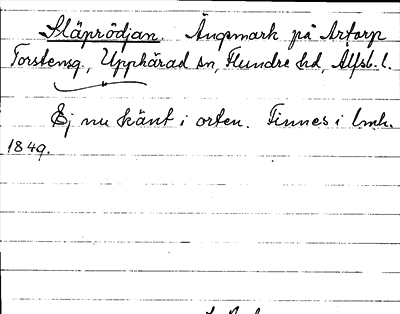 Släprödjan. Ängsmark på Artorp
Torstensg., Upphärad sn, Flundre hd, Älfsb. l.
Ej nu känt i orten. Finnes i lmh.
1849.